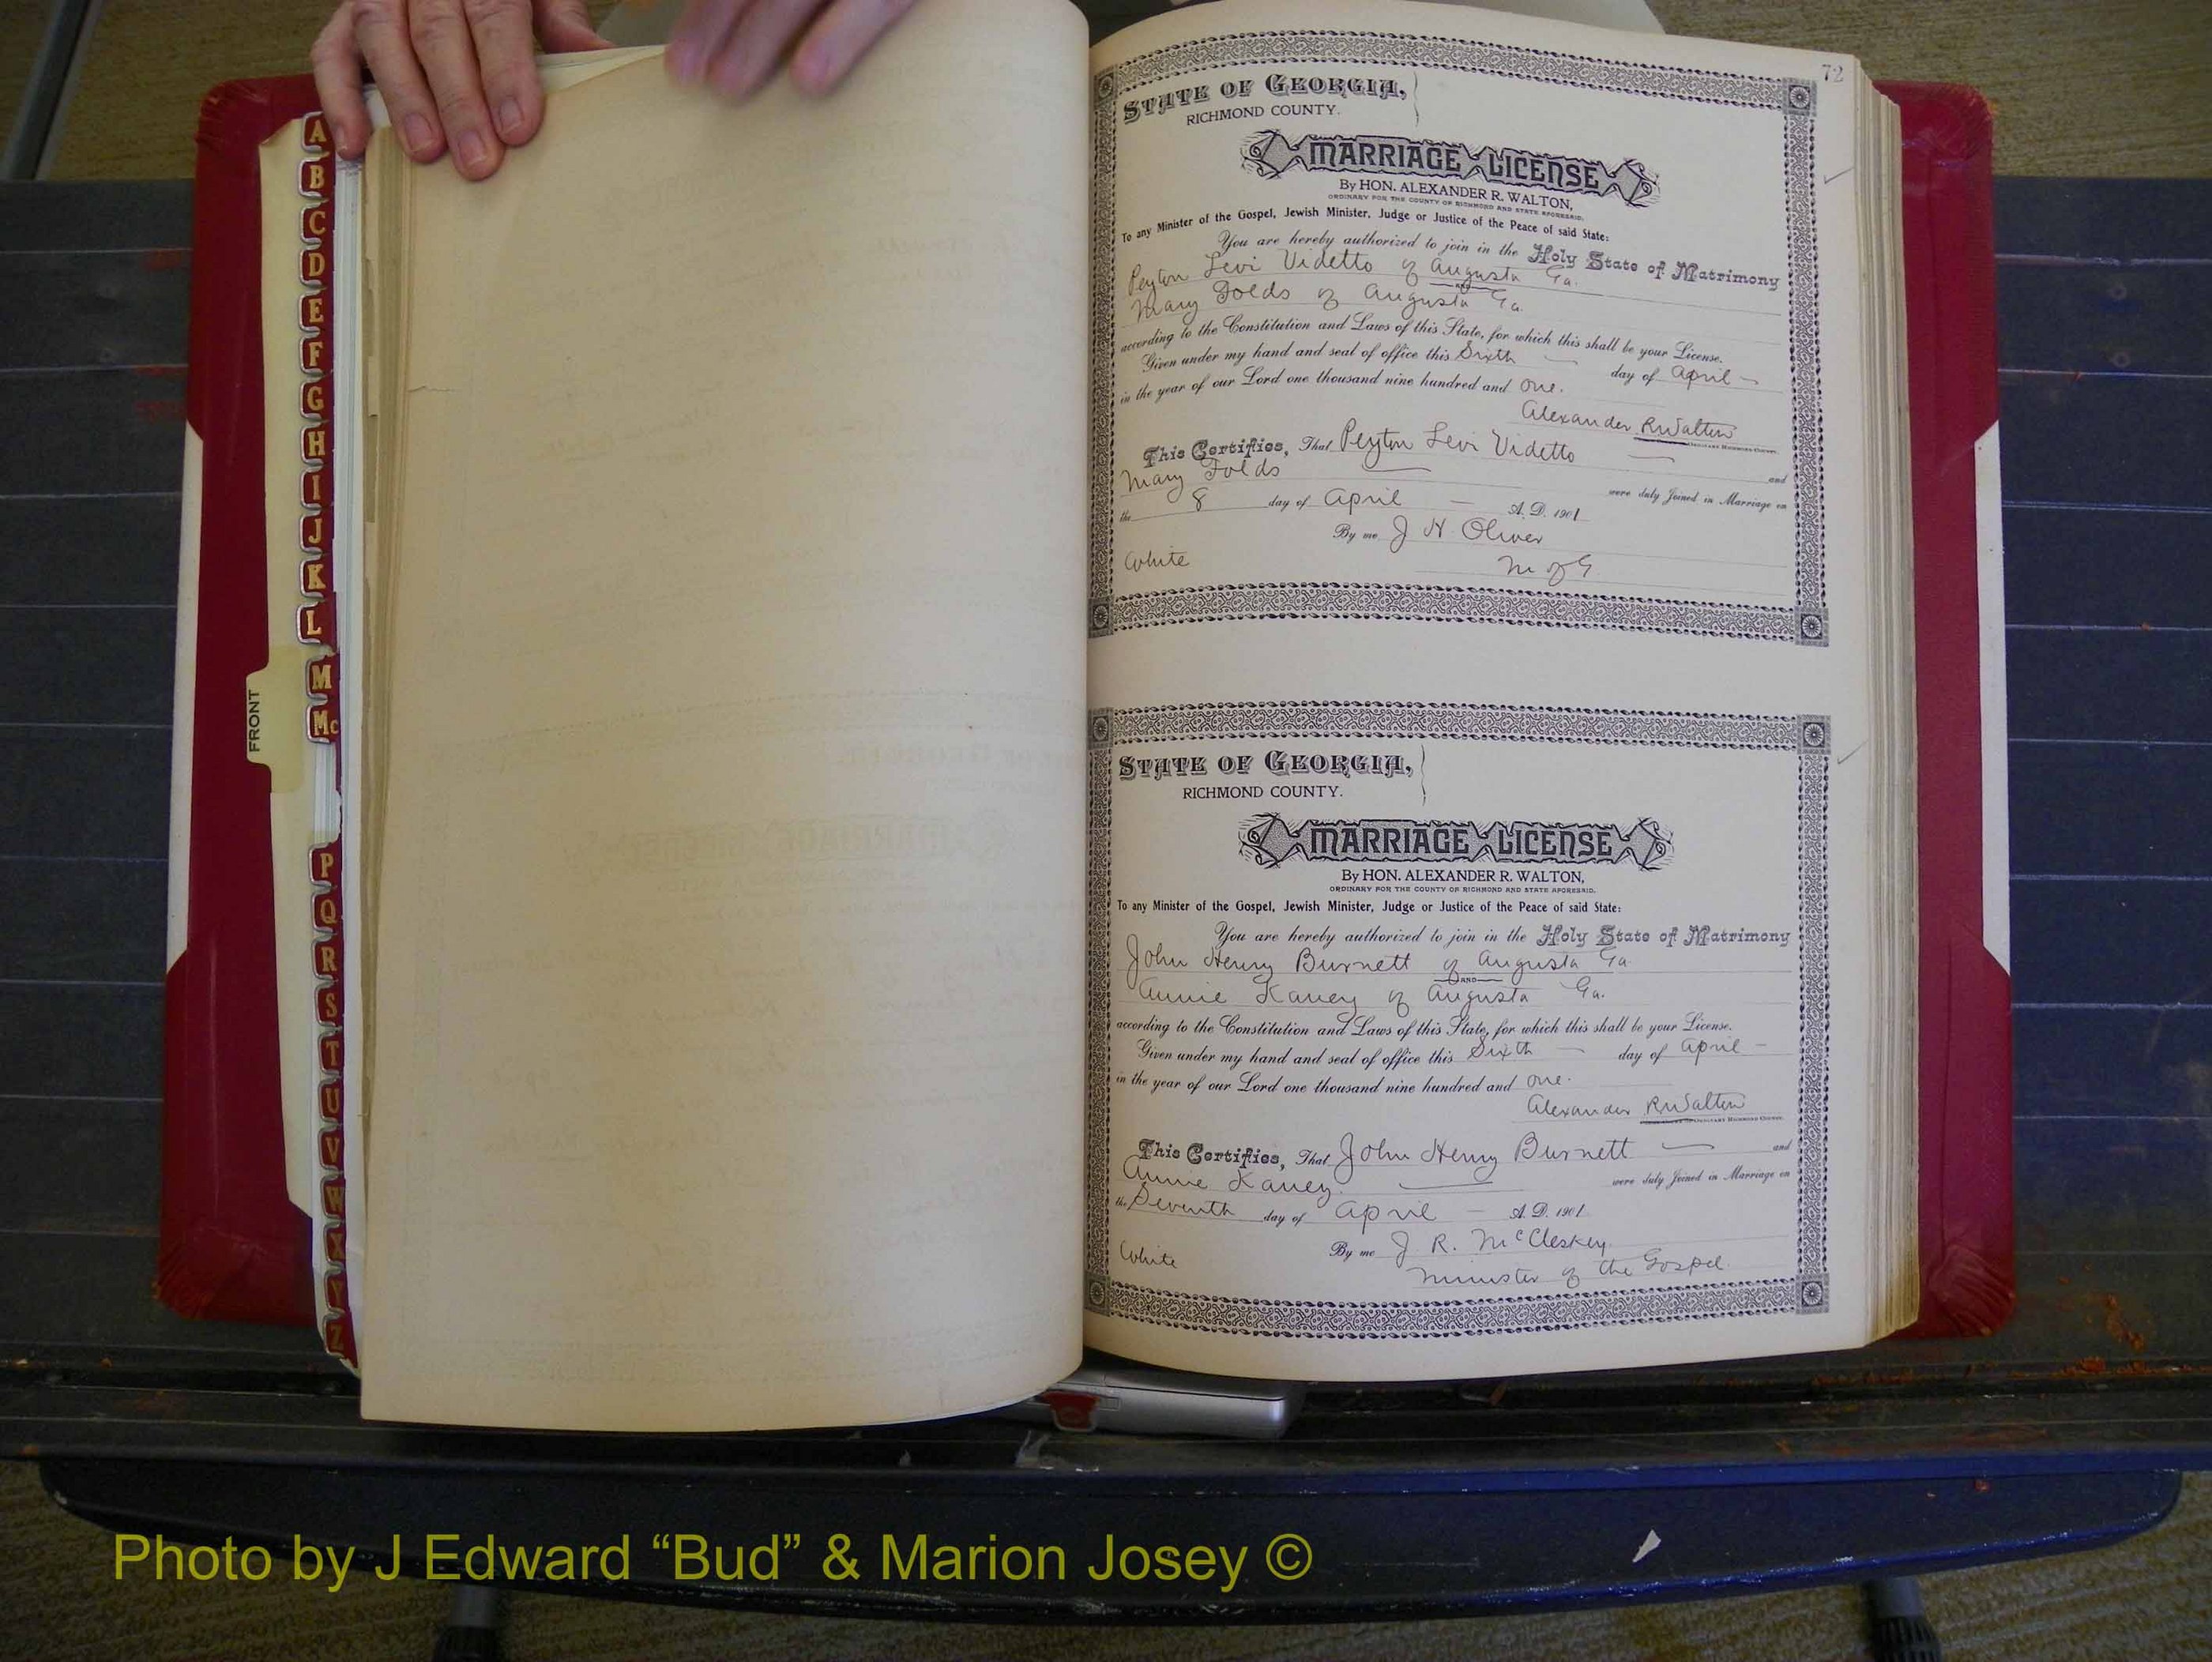 A
B
C
D
E
F
G
H
I
J
K
L
M
Mc
P
Q
R
S
T
U
V
W
X
Y
Z
FRONT
72
STATE OF GEORGIA,
RICHMOND COUNTY.
MARRIAGE LICENSE
By HON. ALEXANDER R. WALTON,
ORDINARY FOR THE COUNTY OF RICHMOND AND STATE AFORESAID.
To any Minister of the Gospel, Jewish Minister, Judge or Justice of the Peace of said State:
You are hereby authorized to join in the Holy State of Matrimony
Peyton Levi Videtto of Augusta Ga.
AND
Mary Folds of Augusta Ga.
according to the Constitution and Laws of this State, for which this shall be your License.
Given under my hand and seal of office this Sixth day of April
in the year of our Lord one thousand nine hundred and one.
Alexander R Walton
ORDINARY RICHMOND COUNTY.
This Certifies, That Peyton Levi Videtto and
Mary Folds were duly Joined in Marriage on
the 8 day of April A. D. 1901
By me J H Oliver
White M of G
STATE OF GEORGIA,
RICHMOND COUNTY.
MARRIAGE LICENSE
By HON. ALEXANDER R. WALTON,
ORDINARY FOR THE COUNTY OF RICHMOND AND STATE AFORESAID.
To any Minister of the Gospel, Jewish Minister, Judge or Justice of the Peace of said State:
You are hereby authorized to join in the Holy State of Matrimony
John Henry Burnett of Augusta Ga
AND
Annie Kaney of Augusta Ga.
according to the Constitution and Laws of this State, for which this shall be your License.
Given under my hand and seal of office this Sixth day of April
in the year of our Lord one thousand nine hundred and one.
Alexander R Walton
ORDINARY RICHMOND COUNTY.
This Certifies, That John Henry Burnett and
Annie Kaney. were duly Joined in Marriage on
the Seventh day of April A. D. 1901
By me J. R. McCleskey.
White Minister of the Gospel.
Photo by J Edward “Bud” & Marion Josey ©